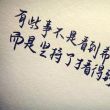 有些事不是看到希
而是坚持了才看得